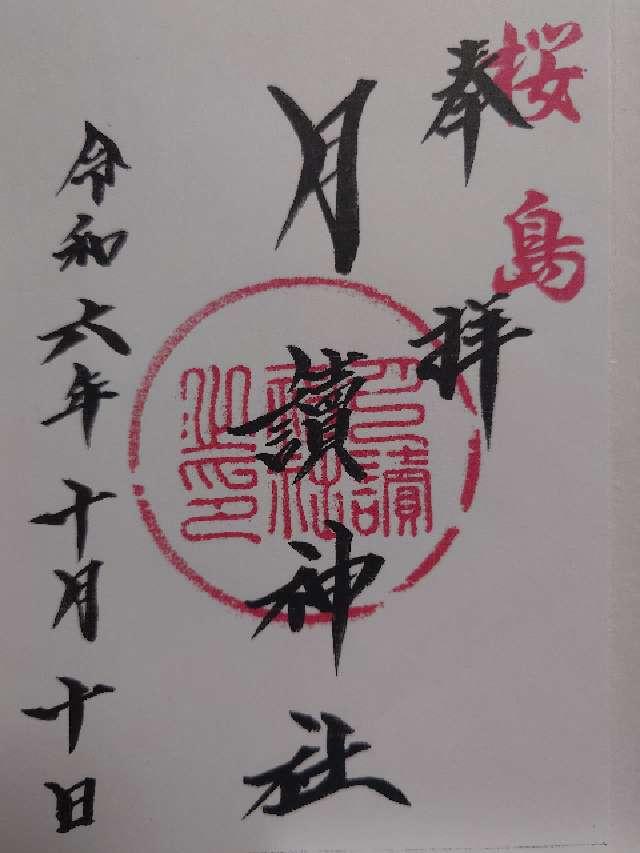 桜島
奉拝
月讀神社
月讀神社之印
令和六年十月十日